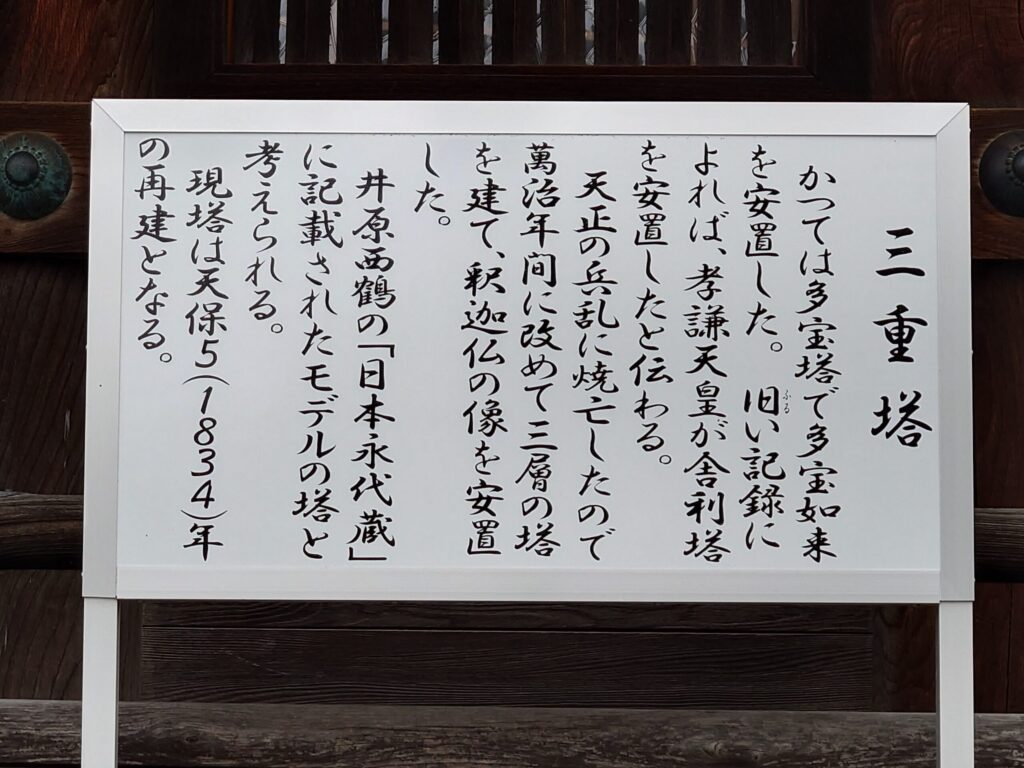 三重塔
かつては多宝塔で多宝如来
を安置した。 旧い記録に
ふる
よれば、孝謙天皇が舎利塔
を安置したと伝わる。
天正の兵乱に焼亡したので
萬治年間に改めて三層の塔
を建て、釈迦仏の像を安置
した。
井原西鶴の「日本永代蔵」
に記載されたモデルの塔と
考えられる。
現塔は天保5(1834)年
の再建となる。